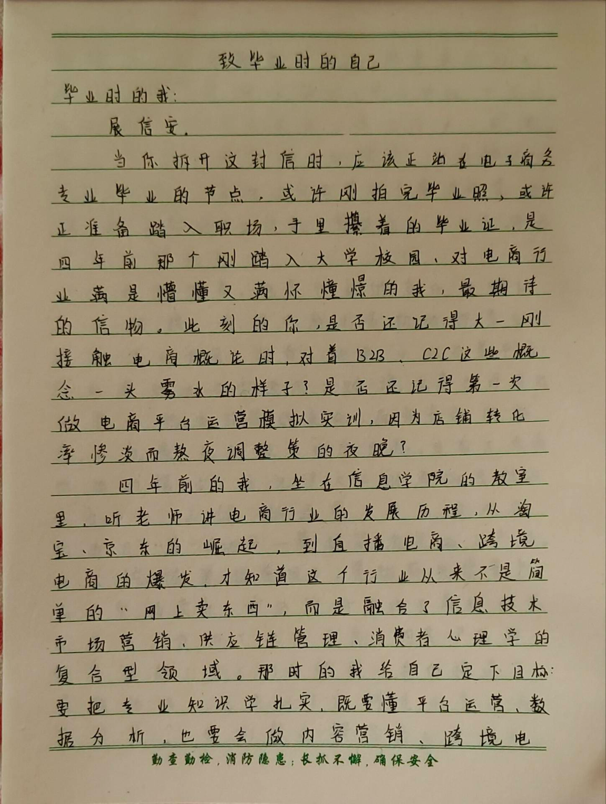 致毕业时的自己
毕业时的我:
展信安。
当你拆开这封信时，应该正站在电子商务
专业毕业的节点，或许刚拍完毕业照，或许
正准备踏入职场，手里攥着的毕业证，是
四年前那个刚踏入大学校园、对电商行
业满是懵懂又满怀憧憬的我，最期待
的信物。此刻的你，是否还记得大一刚
接触电商概论时，对着B2B、C2C这些概
念一头雾水的样子?是否还记得第一次
做电商平台运营模拟实训，因为店铺转化
率惨淡而熬夜调整策的夜晚?
四年前的我，坐在信息学院的教室
里，听老师讲电商行业的发展历程，从淘
宝、京东的崛起，到直播电商、跨境
电商的爆发，才知道这个行业从来不是简
单的“网上卖东西”，而是融合了信息技术
市场营销、供应链管理、消费者心理学的
复合型领域。那时的我给自己定下目标:
要把专业知识学扎实，既要懂平台运营、数
据分析，也要会做内容营销、跨境电
勤查勤检，消防隐患；长抓不懈，确保安全